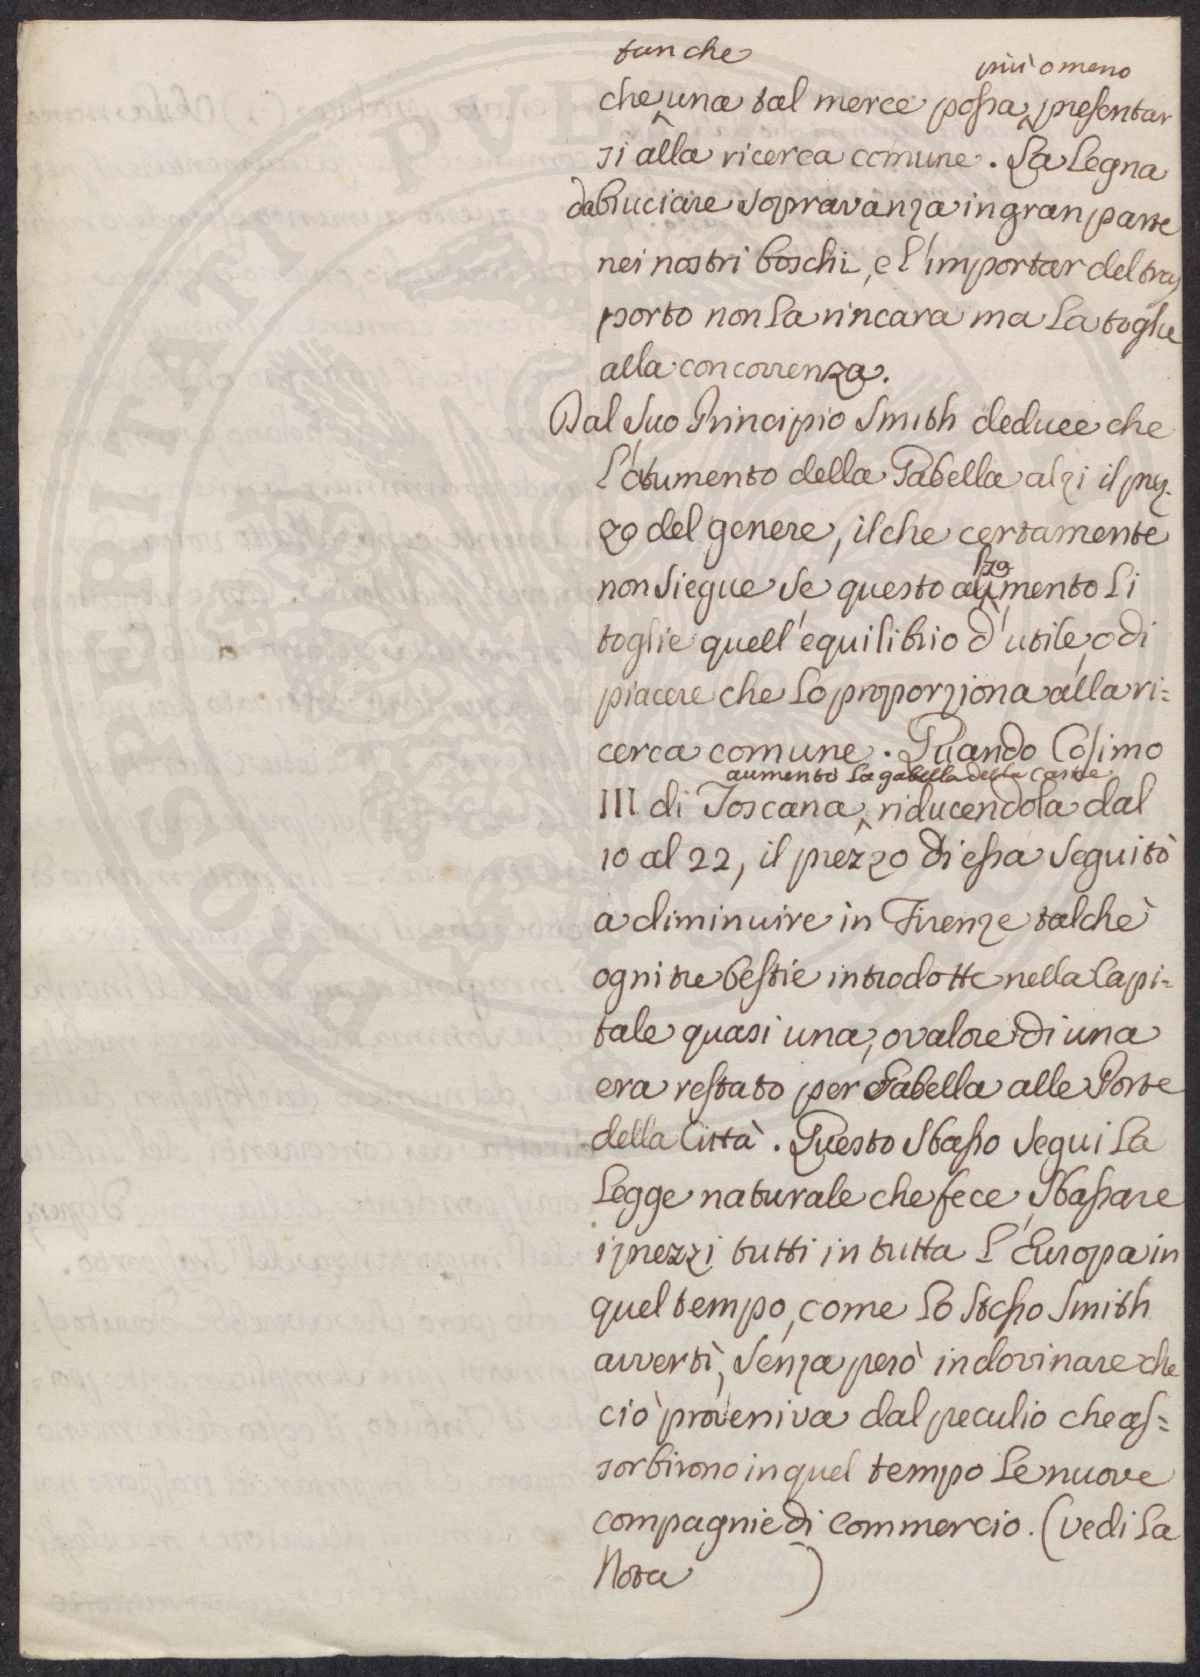 tanche
più o meno
che una tal merce possa presentar
si alla ricerca comune. La Legna
da bruciare sopravanza in gran parte
nei nostri boschi, e l'importar del tras
porto non la rincara ma la toglie
alla concorrenza.
Dal suo Principio Smith deduce che
l'aumento della Gabella alzi il prez-
zo del genere, il che certamente
non siegue se questo aumento li
toglie quell'equilibrio d'utile, o di
piacere che lo proporziona alla ri=
cerca comune. Quando Cosimo
aumentò la gabella della carne
III di Toscana, riducendola dal
10 al 22, il prezzo di essa seguitò
a diminuire in Firenze talchè
ogni tre bestie introdotte nella Capi=
tale quasi una, o valore di una
era restato per Gabella alle Porte
della Città. Questo sbasso seguì la
Legge naturale che fece sbassare
i prezzi tutti in tutta l'Europa in
quel tempo, come lo stesso Smith
avvertì, senza però indovinare che
ciò proveniva dal peculio che as=
sorbirono in quel tempo le nuove
compagnie di Commercio. (vedi la
Nota )